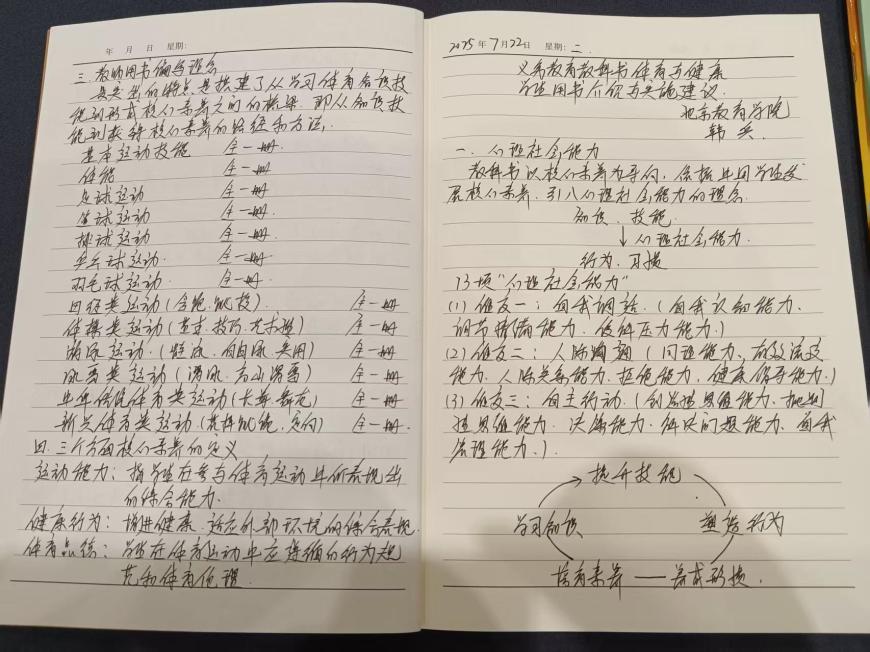 年 月 日 星期:
三. 教师用书编写理念
其突出的特点是搭建了从学习体育知识技
能到形成核心素养之间的桥梁. 即从知识技
能到获得核心素养的路径和方法.
基本运动技能 全一册
体能 全一册
足球运动 全一册.
篮球运动 全一册.
排球运动 全一册
乒乓球运动. 全一册.
羽毛球运动. 全一册.
田径类运动(含跑.跳.投). 全一册
体操类运动(支撑.技巧. ) 全一册
游泳运动.(蛙泳.自由泳.实用) 全一册
冰雪类运动(滑冰.高山滑雪) 全一册
中华传统体育类运动(长拳.舞龙) 全一册
新兴体育类运动(花样跳绳.定向) 全一册.
四. 三个方面核心素养的定义
运动能力: 指学生在参与体育运动中所表现出
的综合能力.
健康行为: 增进健康.适应外部环境的综合表现
体育品德: 学生在体育运动中应遵循的行为规
范和体育伦理.
2025年7月22日 星期:二.
义务教育教科书体育与健康
学生用书介绍与实施建议.
北京教育学院
韩兵
一. 心理社会能力
教科书以核心素养为导向, 依据中国学生发
展核心素养. 引入心理社会能力的理念.
知识、技能.
↓心理社会能力.
行为、习惯
13项“心理社会能力”
(1) 维度一: 自我调适.(自我认知能力、
调节情绪能力、缓解压力能力.)
(2) 维度二: 人际 (同理能力、有效沟通
能力、人际关系能力、拒绝能力、健康倡导能力.)
(3) 维度三: 自主行动.(创造性思维能力、批判
性思维能力、决策能力、解决问题能力、自我
管理能力.)
提升技能
学习知识 塑造行为
培育素养 — 养成习惯.